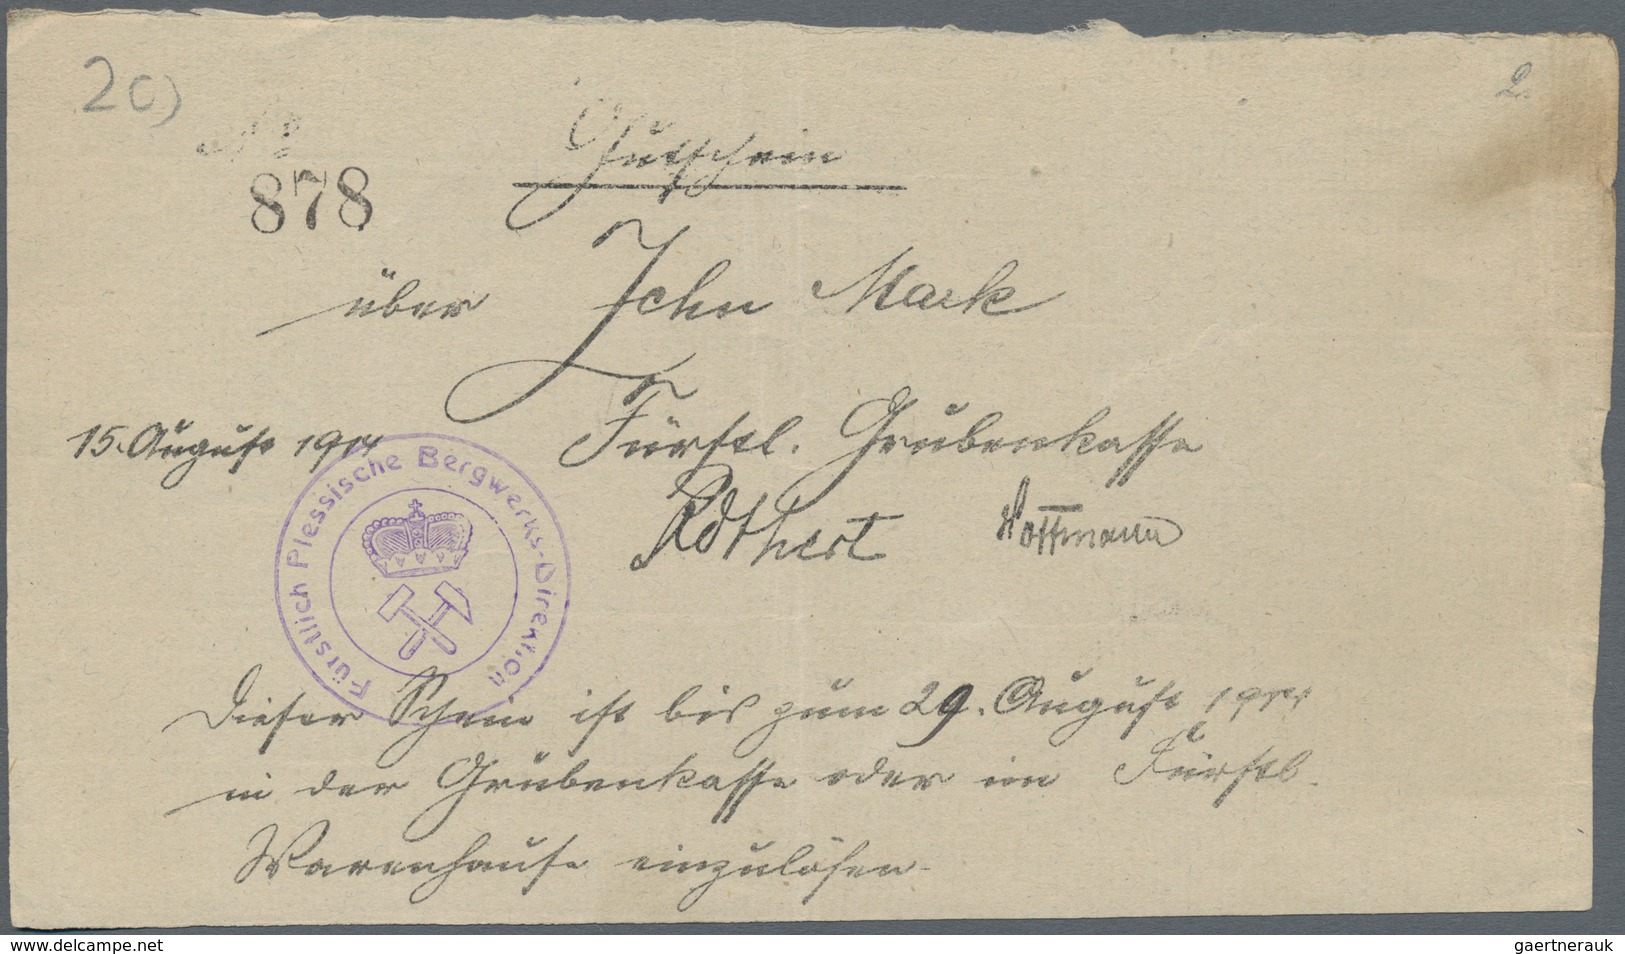 2c)
2.
No
878
Gutschein
über Zehn Mark
15. August 1914
Fürstl. Grubenkasse
Rothert Hoffmann
Fürstlich Plessische Bergwerks-Direktion
Dieser Schein ist bis zum 29. August 1914
in der Grubenkasse oder im Fürstl.
Warenhause einzulösen.
www.delcampe.net
gaertnerauk